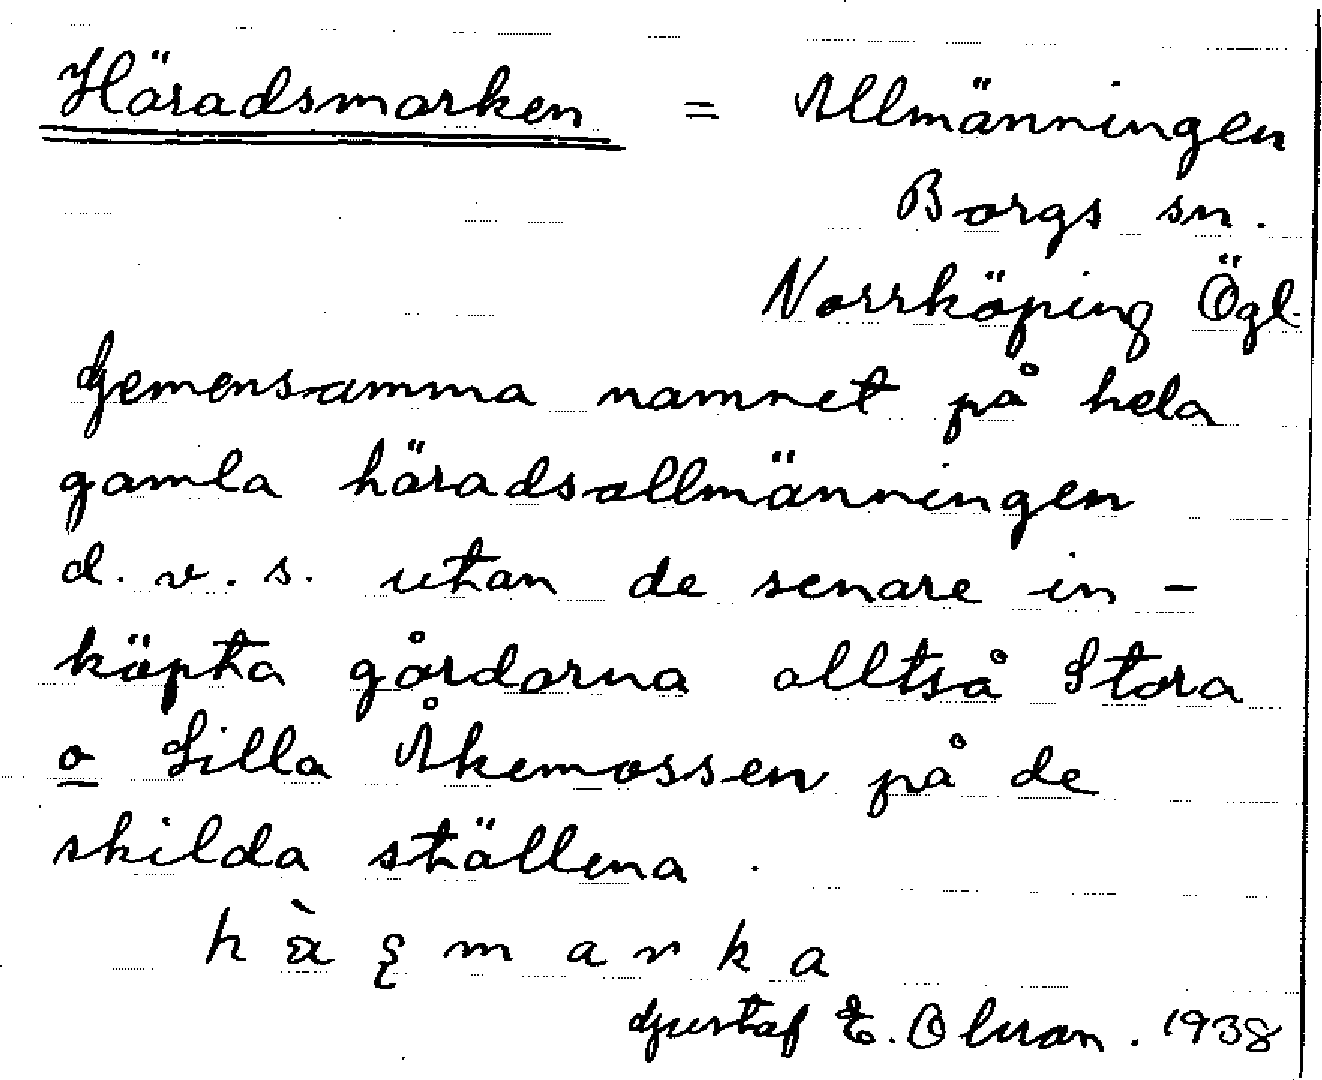 Häradsmarken = Allmänningen
Borgs sn.
Norrköping Ögl.
Gemensamma namnet på hela
gamla häradsallmänningen
d.v.s. utan de senare in-
köpta gårdarna alltså Stora
o Lilla Åkemossen på de
skilda ställena.
Gustaf E. Olsson. 1938